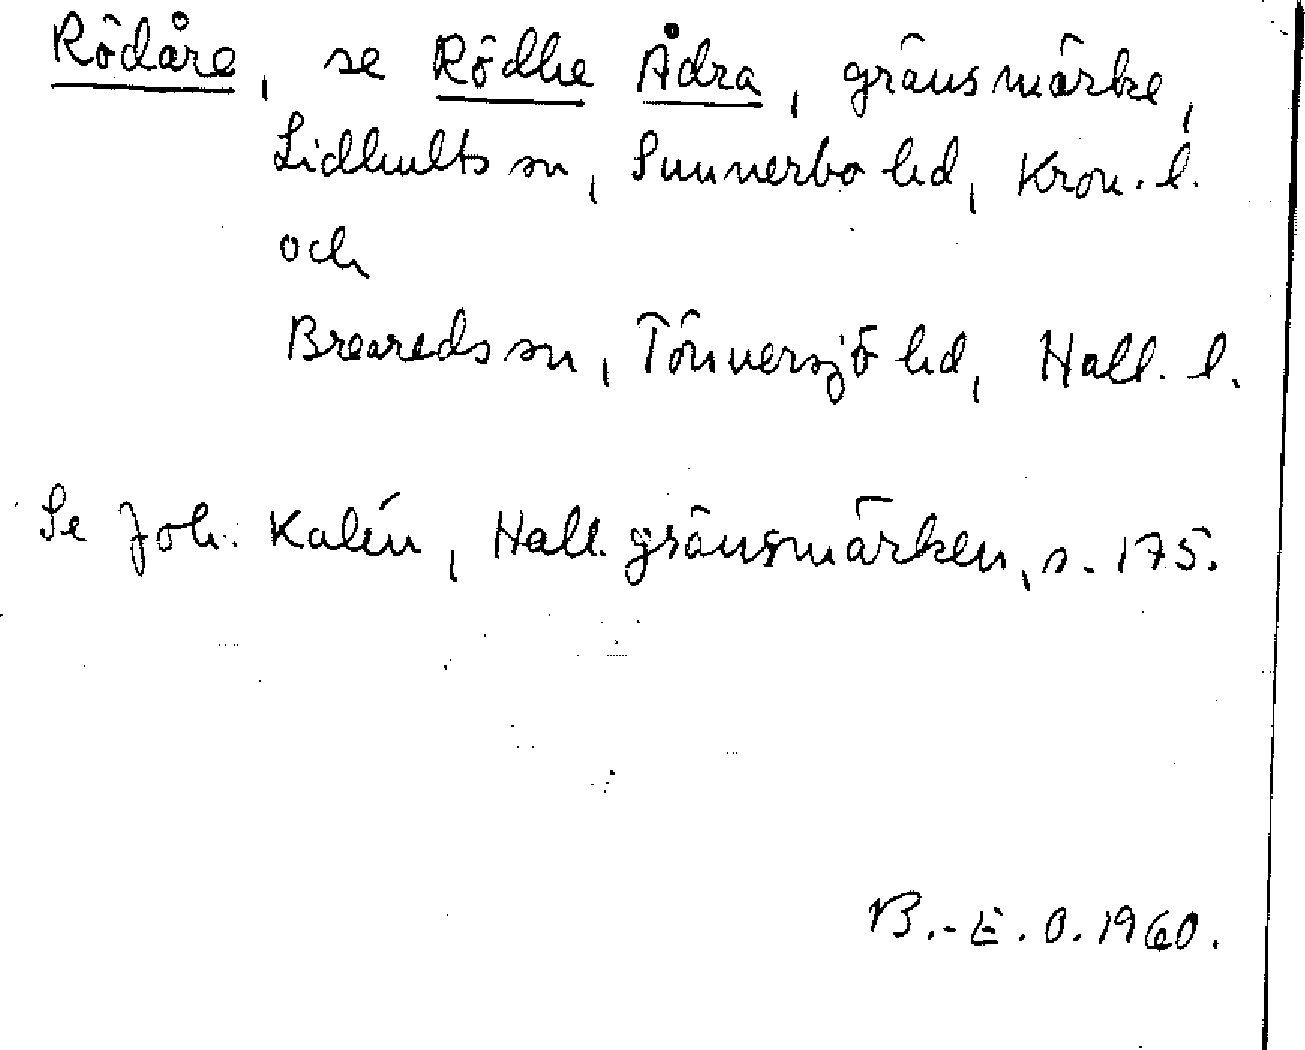 Rödåre, se Rödhe Ådra, gränsmärke,
Lidhults sn, Sunnerbo hd, Kron. l.
och
Breareds sn, Tönnersjö hd, Hall. l.
Se Joh. Kalén, Hall. gränsmärken, s. 175.
B.-E. O. 1960.